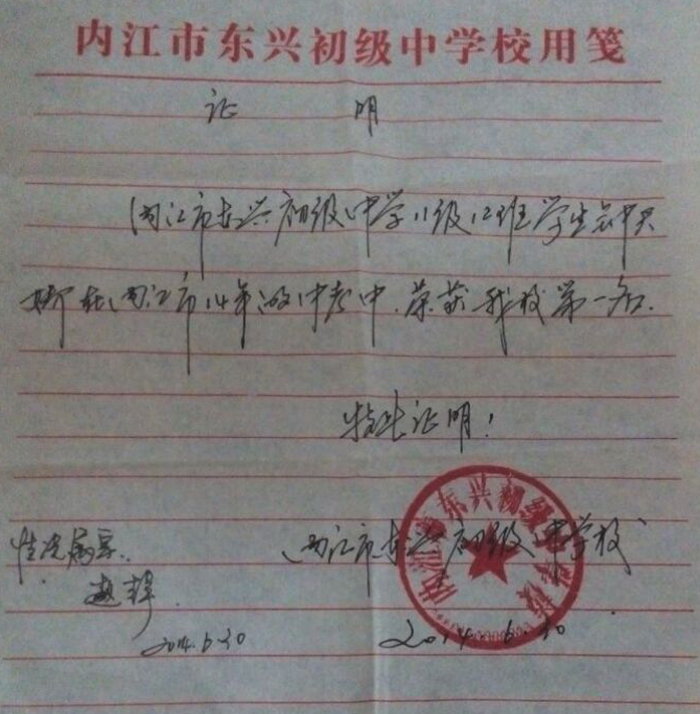 内江市东兴初级中学校用笺
证 明
内江市东兴初级中学11级12班学生
在内江市14年的中考中.荣获我校第一名.
特此证明!
内江市东兴初级中学校
情况属实.
内江市东兴初级中学校
2014.6.30
2014.6.30